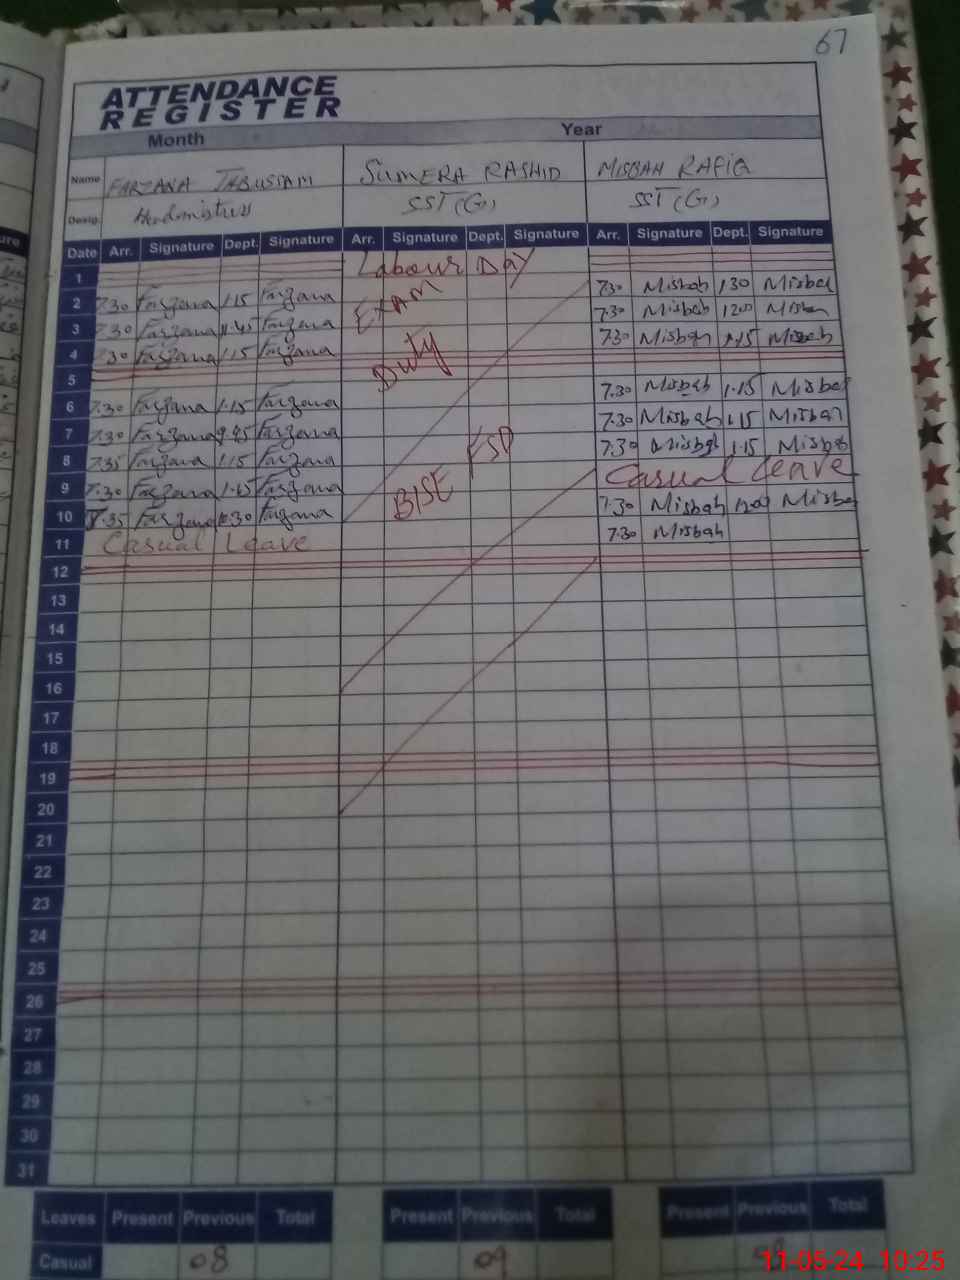 67
ATTENDANCE
REGISTER
Month Year
Name FARZANA TABUSSAM SUMERA RASHID MISBAH RAFIQ
Desig. Headmistress SST (G) SST (G)
Date Arr. Signature Dept. Signature Arr. Signature Dept. Signature Arr. Signature Dept. Signature
1 Labour Day
2 7.30 Farzana 1.15 Farzana EXAM 7.30 Misbah 1.30 Misbah
3 7.30 Farzana Farzana 7.30 Misbah 12.00 Misbah
4 7.30 Farzana 1.15 Farzana Duty 7.30 Misbah 1.15 Misbah
5
6 7.30 Farzana 1.15 Farzana 7.30 Misbah 1.15 Misbah
7 7.30 Farzana 9.45 Farzana 7.30 Misbah 1.15 Misbah
8 7.35 Farzana 1.15 Farzana FSD 7.30 Misbah 1.15 Misbah
9 7.30 Farzana 1.15 Farzana BISE Casual leave
10 7.35 Farzana Farzana 7.30 Misbah Misbah
11 Casual Leave 7.30 Misbah
12
13
14
15
16
17
18
19
20
21
22
23
24
25
26
27
28
29
30
31
Leaves Present Previous Total Present Previous Total Present Previous Total
Casual 08 09
11-05-24 10:25